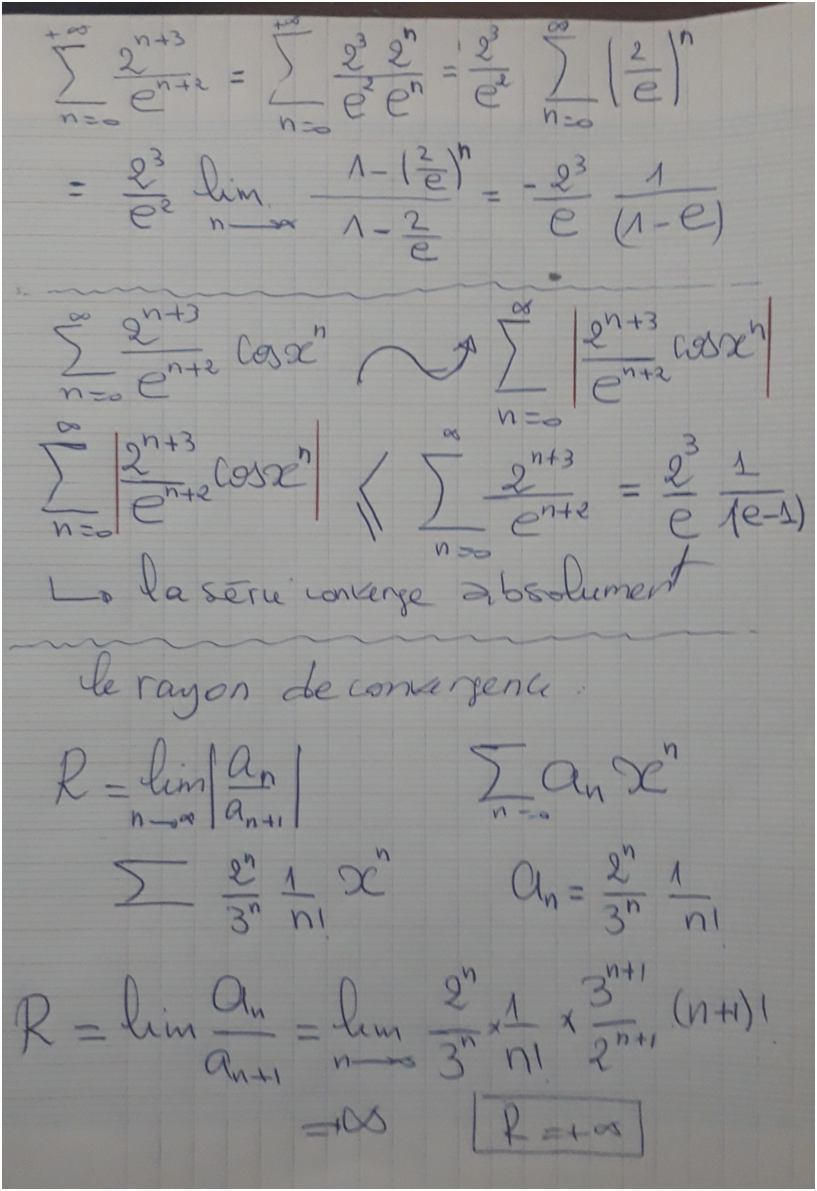 \sum_{n=0}^{+\infty} \frac{2^{n+3}}{e^{n+2}} = \sum_{n=0}^{+\infty} \frac{2^3 2^n}{e^2 e^n} = \frac{2^3}{e^2} \sum_{n=0}^{\infty} \left(\frac{2}{e}\right)^n
= \frac{2^3}{e^2} \lim_{n \to \infty} \frac{1-(\frac{2}{e})^n}{1-\frac{2}{e}} = \frac{-2^3}{e} \frac{1}{(1-e)}
\sum_{n=0}^{\infty} \frac{2^{n+3}}{e^{n+2}} \cos x^n \leadsto \sum_{n=0}^{\infty} \left|\frac{2^{n+3}}{e^{n+2}} \cos x^n\right|
\sum_{n=0}^{\infty} \left|\frac{2^{n+3}}{e^{n+2}} \cos x^n\right| \leqslant \sum_{n=0}^{\infty} \frac{2^{n+3}}{e^{n+2}} = \frac{2^3}{e} \frac{1}{(e-1)}
↳ la série converge absolument
le rayon de convergence.
R = \lim_{n \to \infty} \left|\frac{a_n}{a_{n+1}}\right| \sum_{n=0} a_n x^n
\sum \frac{2^n}{3^n} \frac{1}{n!} x^n a_n = \frac{2^n}{3^n} \frac{1}{n!}
R = \lim \frac{a_n}{a_{n+1}} = \lim_{n \to \infty} \frac{2^n}{3^n} \times \frac{1}{n!} \times \frac{3^{n+1}}{2^{n+1}} (n+1)!
= +\infty R = +\infty